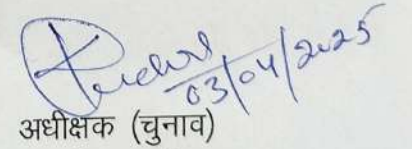 03/04/2025
अधीक्षक (चुनाव)